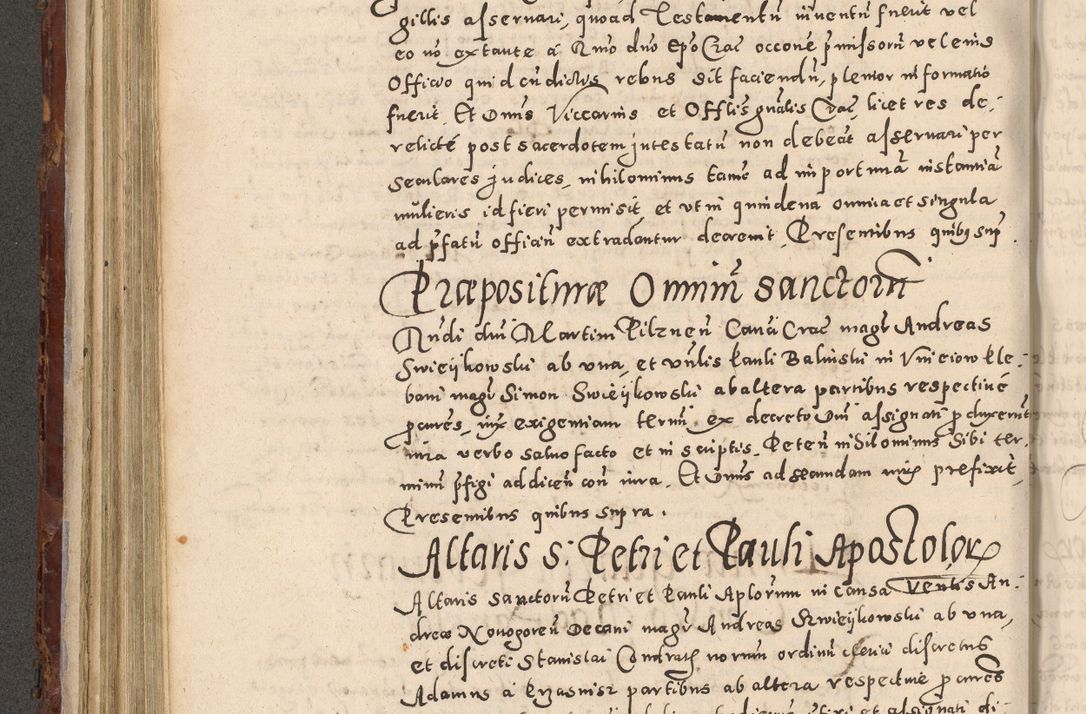 gillis asservari, quoad Testamentū inventū fuerit vel
eo nō extante á Rmo dno Epo Crac occone p̄missorū vel eius
Officio quid cū dictis rebus sit faciendū, plenior informatio
fuerit. Et Dnus Viccarius et Offlis gnalis Crac, licet res de-
relicté post sacerdotem intestatū non debeāt asservari per
seculares judices, nihilominus tamē ad importunā instantiā
mulieris id fieri permisit, et ut in quindena omnia et singula
ad p̄fatū officiū extradantur decrevit, Presentibus quibus sup.
Præpositurae Omniū sanctorū
Nudi dni Martini Pilznen Canci Crac magr Andreas
Swieijkowski ab una, et Vnlis Pauli Balinski in Unieiow ple-
bani magr Simon Swieijkowski ab altera partibus respective
pcures, iux exigentiam termi ex decreto Dni assignati produxerūt
iura verbo salvo facto et in scriptis. Peten nihilominus sibi ter-
minū p̄figi ad dicen con iura. Et Dnus ad secundam iurs prefixit,
Presentibus quibus supra.
Altaris S: Petri et Pauli Apostolorū
Altaris Sanctorū Petri et Pauli Aplorum in causa Ventis An-
dreæ Novogoren Decani magr Andreas Swieijkowski ab una,
et discreti Stanislai Condrath norum ordinū clerici discretus
Adamus á Erzasmisz partibus ab altera respective pcures